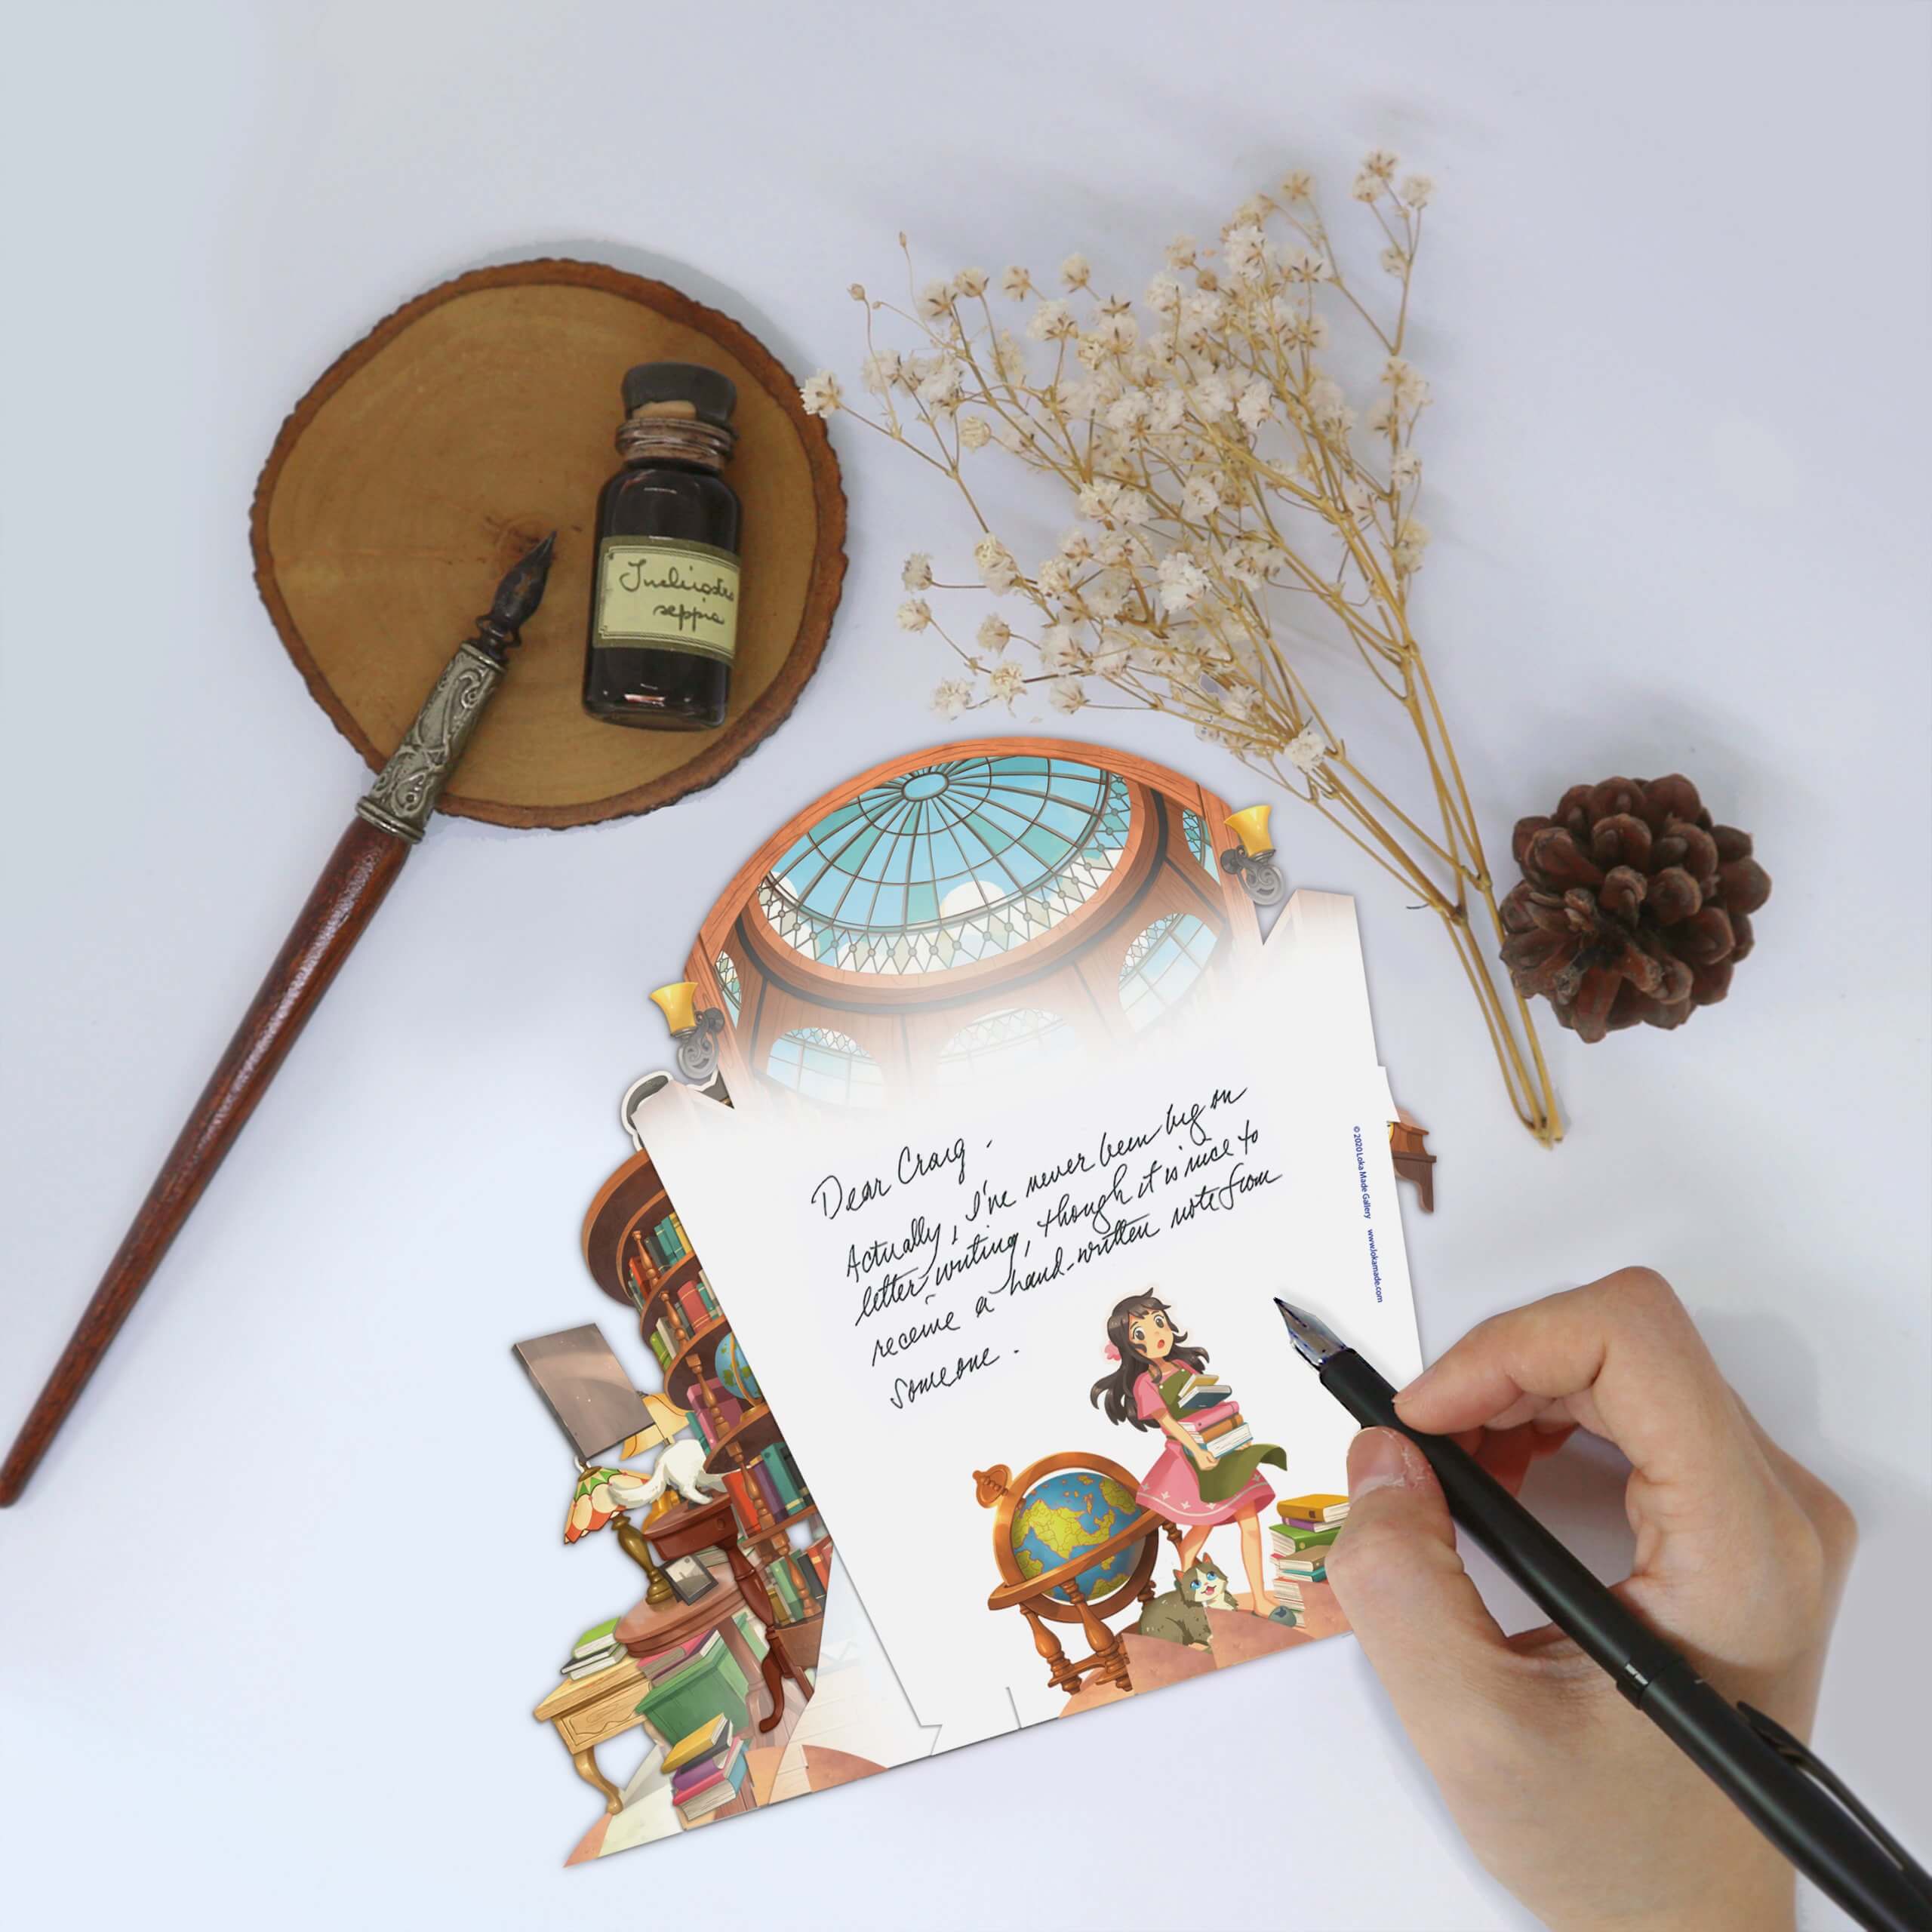 Inchiostro
seppia
Dear Craig.
Actually, I've never been big on
letter-writing, though it is nice to
receive a hand-written note from
someone.
© 2020 Loka Made Gallery www.lokamade.com